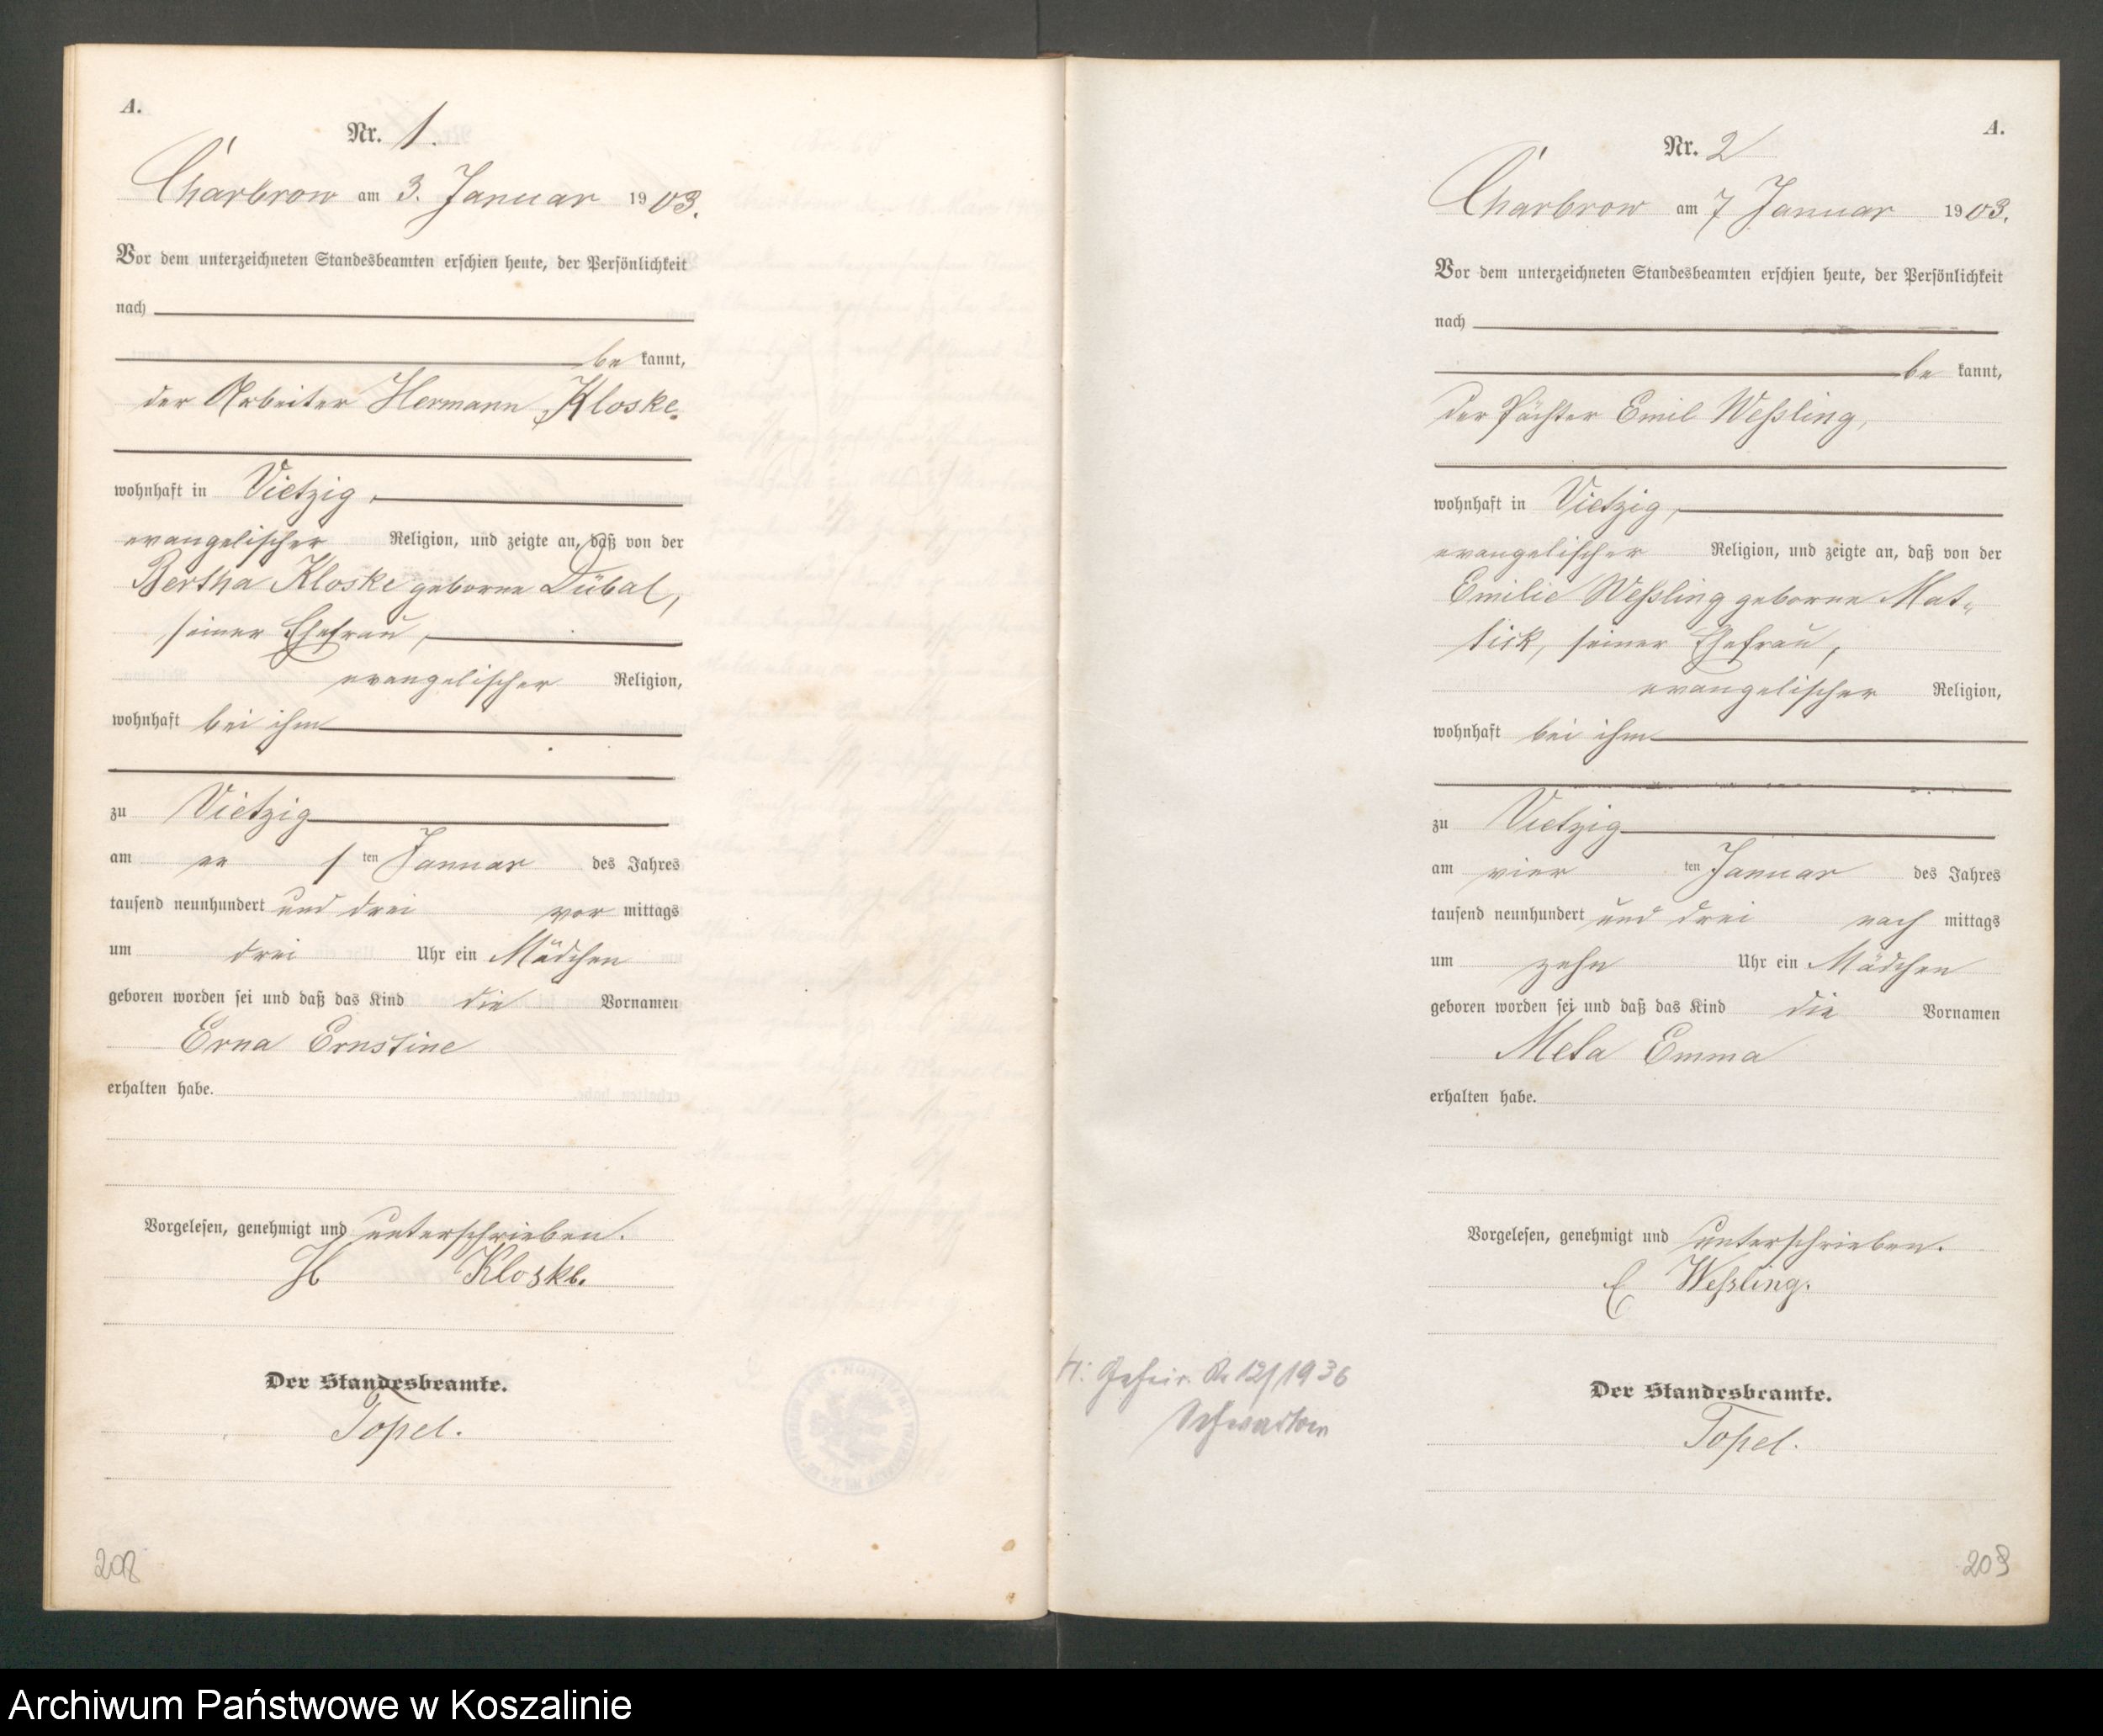 A.
Nr. 1.
Charbrow am 3. Januar 1903.
Vor dem unterzeichneten Standesbeamten erschien heute, der Persönlichkeit
nach
be kannt,
der Arbeiter Hermann Kloske,
wohnhaft in Vietzig,
evangelischer Religion, und zeigte an, daß von der
Bertha Kloske geborne Dübal,
seiner Ehefrau,
evangelischer Religion,
wohnhaft bei ihm
zu Vietzig
am ten Januar des Jahres
tausend neunhundert und drei vor mittags
um drei Uhr ein Mädchen
geboren worden sei und daß das Kind die Vornamen
Erna Ernstine
erhalten habe.
Vorgelesen, genehmigt und unterschrieben.
H Kloske.
Der Standesbeamte.
Topel.
208
A.
Nr. 2
Charbrow am 7 Januar 1903.
Vor dem unterzeichneten Standesbeamten erschien heute, der Persönlichkeit
nach
be kannt,
der Pächter Emil Weßling,
wohnhaft in Vietzig,
evangelischer Religion, und zeigte an, daß von der
Emilie Weßling geborne Mat-
tick, seiner Ehefrau,
evangelischer Religion,
wohnhaft bei ihm
zu Vietzig
am vier ten Januar des Jahres
tausend neunhundert und drei nach mittags
um zehn Uhr ein Mädchen
geboren worden sei und daß das Kind die Vornamen
Meta Emma
erhalten habe.
Vorgelesen, genehmigt und unterschrieben.
E Weßling.
Der Standesbeamte.
Topel.
12/1936
209
Archiwum Państwowe w Koszalinie